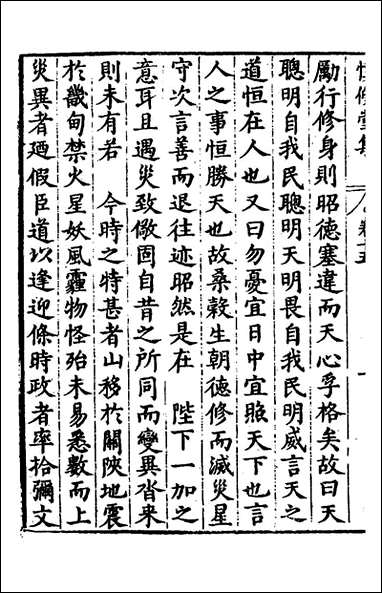 卷十五
勵行修身則昭德塞違而天心孚格矣故曰天
聰明自我民聰明天明畏自我民明威言天之
道恒在人也又曰勿憂宜日中宜照天下也言
人之事恒勝天也故桑榖生朝德修而滅災星
守次言善而退往迹昭然是在　陛下一加之
意耳且遇災致儆固自昔之所同而變異沓來
則未有若　今時之特甚者山移於關陝地震
於畿甸禁火星妖風霾物怪殆未易悉數而上
災異者迺假臣道以逢迎條時政者率拾彌文